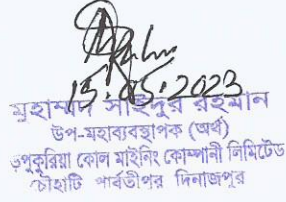 15.05.2023
মুহাম্মদ সাইদুর রহমান
উপ-মহাব্যবস্থাপক (অর্থ)
ড়পুকুরিয়া কোল মাইনিং কোম্পানী লিমিটেড
চৌহাটি পার্বতীপুর দিনাজপুর